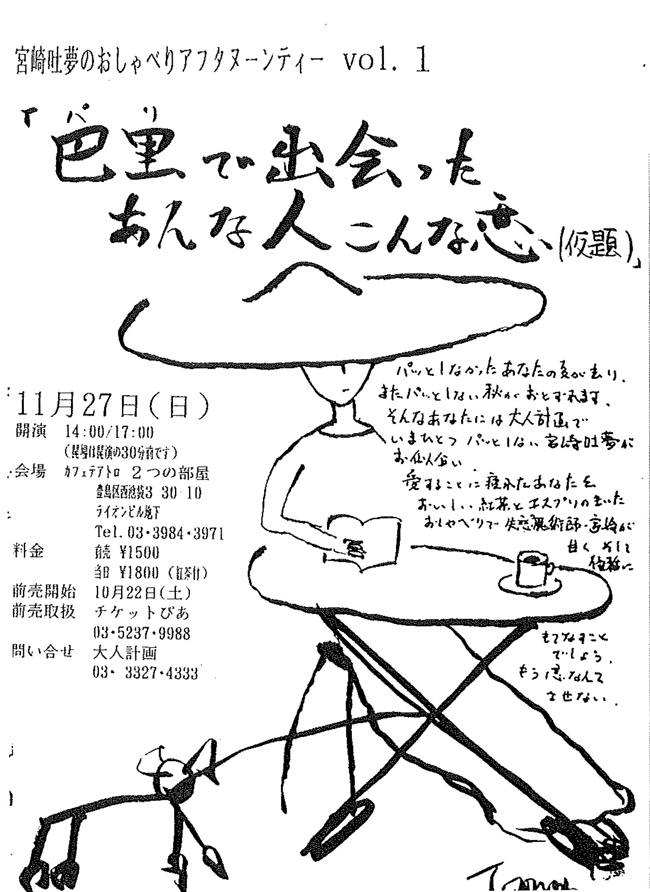 宮崎吐夢のおしゃべりアフタヌーンティー vol. 1
パリ
「巴里で出会った
あんな人こんな恋(仮題)」
パッとしなかったあなたの夏が去り、
またパッとしない秋がおとずれます。
そんなあなたには大人計画で
いまひとつ パッとしない 宮崎吐夢が
お似合い。
愛することに疲れたあなたを
おいしい紅茶とエスプリのきいた
おしゃべりで 失恋魔術師・宮崎が
甘く そして
優雅に
もてなすこと
でしょう。
もう恋なんて
させない。
11月27日(日)
開演 14:00/17:00
(開場は開演の30分前です)
会場 カフェテアトロ 2つの部屋
豊島区西池袋3 30 10
ライオンビル地下
Tel.03・3984・3971
料金 前売 ¥1500
当日 ¥1800 (紅茶付)
前売開始 10月22日(土)
前売取扱 チケットぴあ
03・5237・9988
問い合せ 大人計画
03・3327・4333